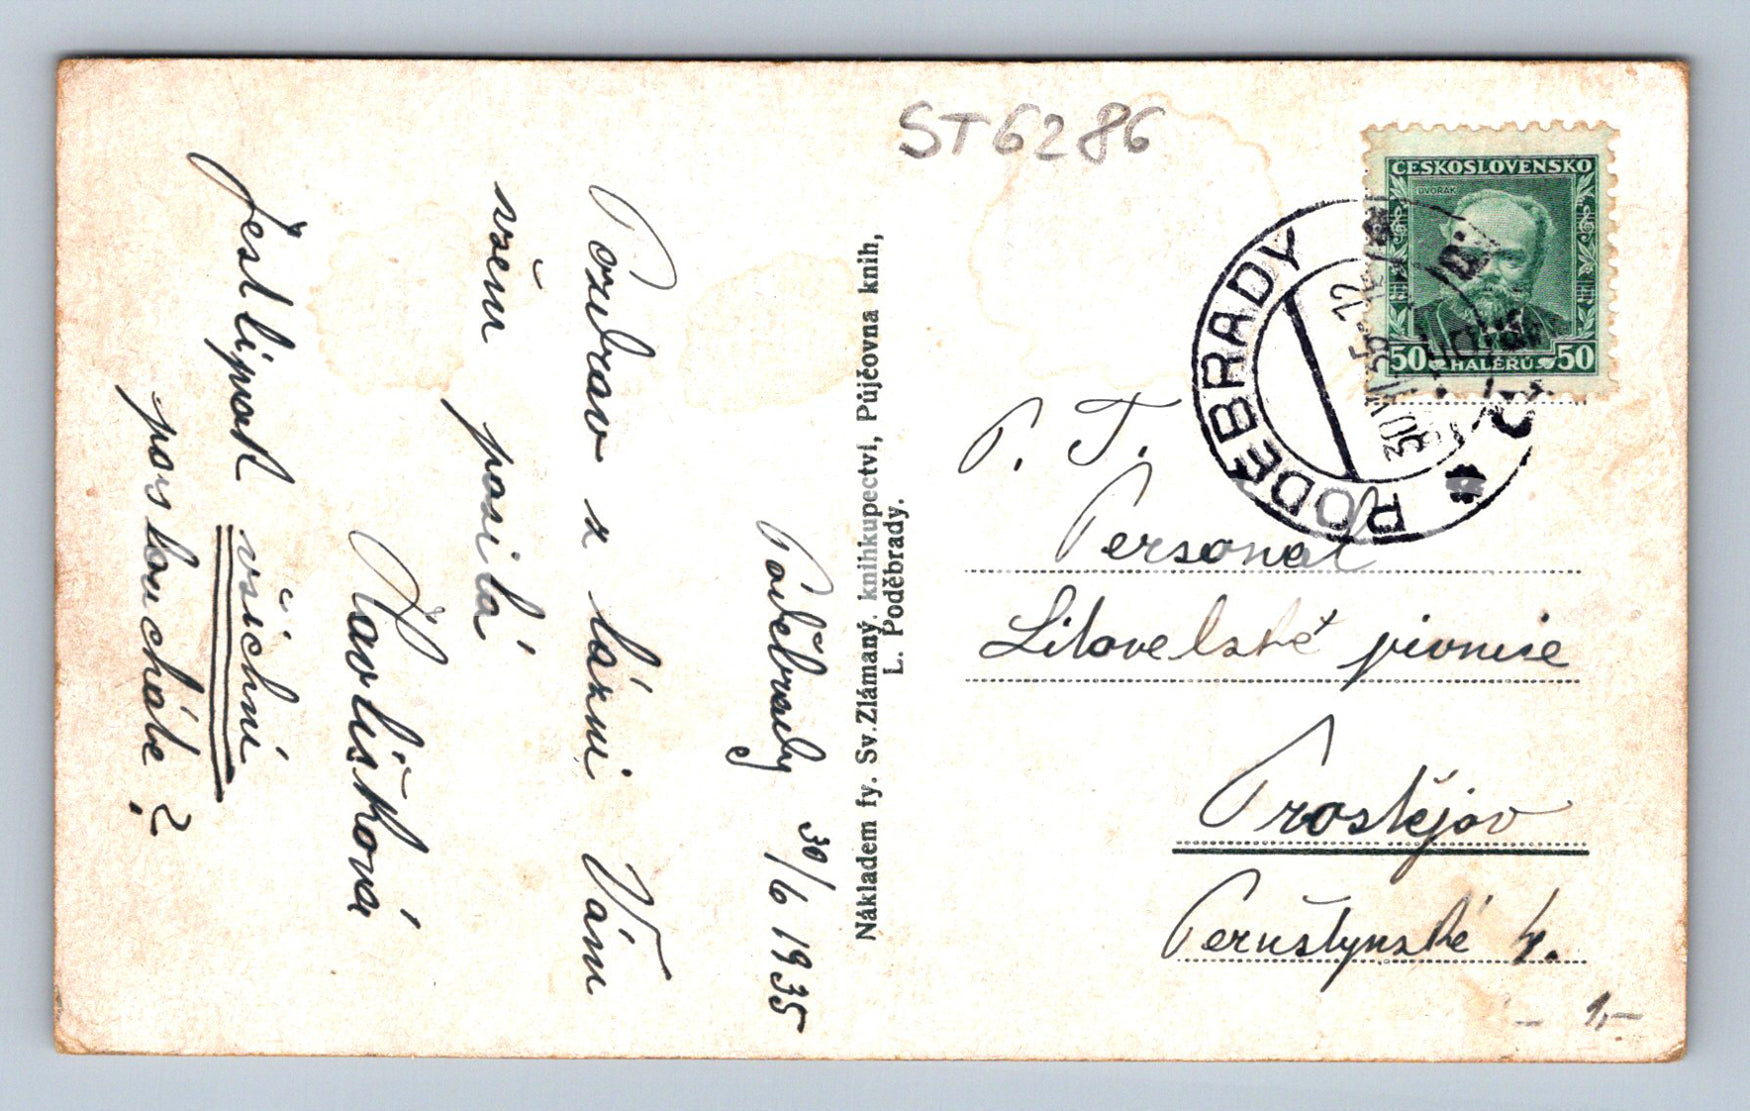 ST6286
ČESKOSLOVENSKO
DVOŘÁK
50 HALÉŘŮ 50
PODĚBRADY
30.VI.35-12
Poděbrady 30/6 1935
Pozdrav z lázní Vám
všem posílá
Havlíšková
Jestlipak všichni
posloucháte?
Nákladem fy. Sv. Zlámaný, knihkupectví, Půjčovna knih,
L. Poděbrady.
P. T.
Personal
Litovelské pivnice
Prostějov
Pernštynské
1,-